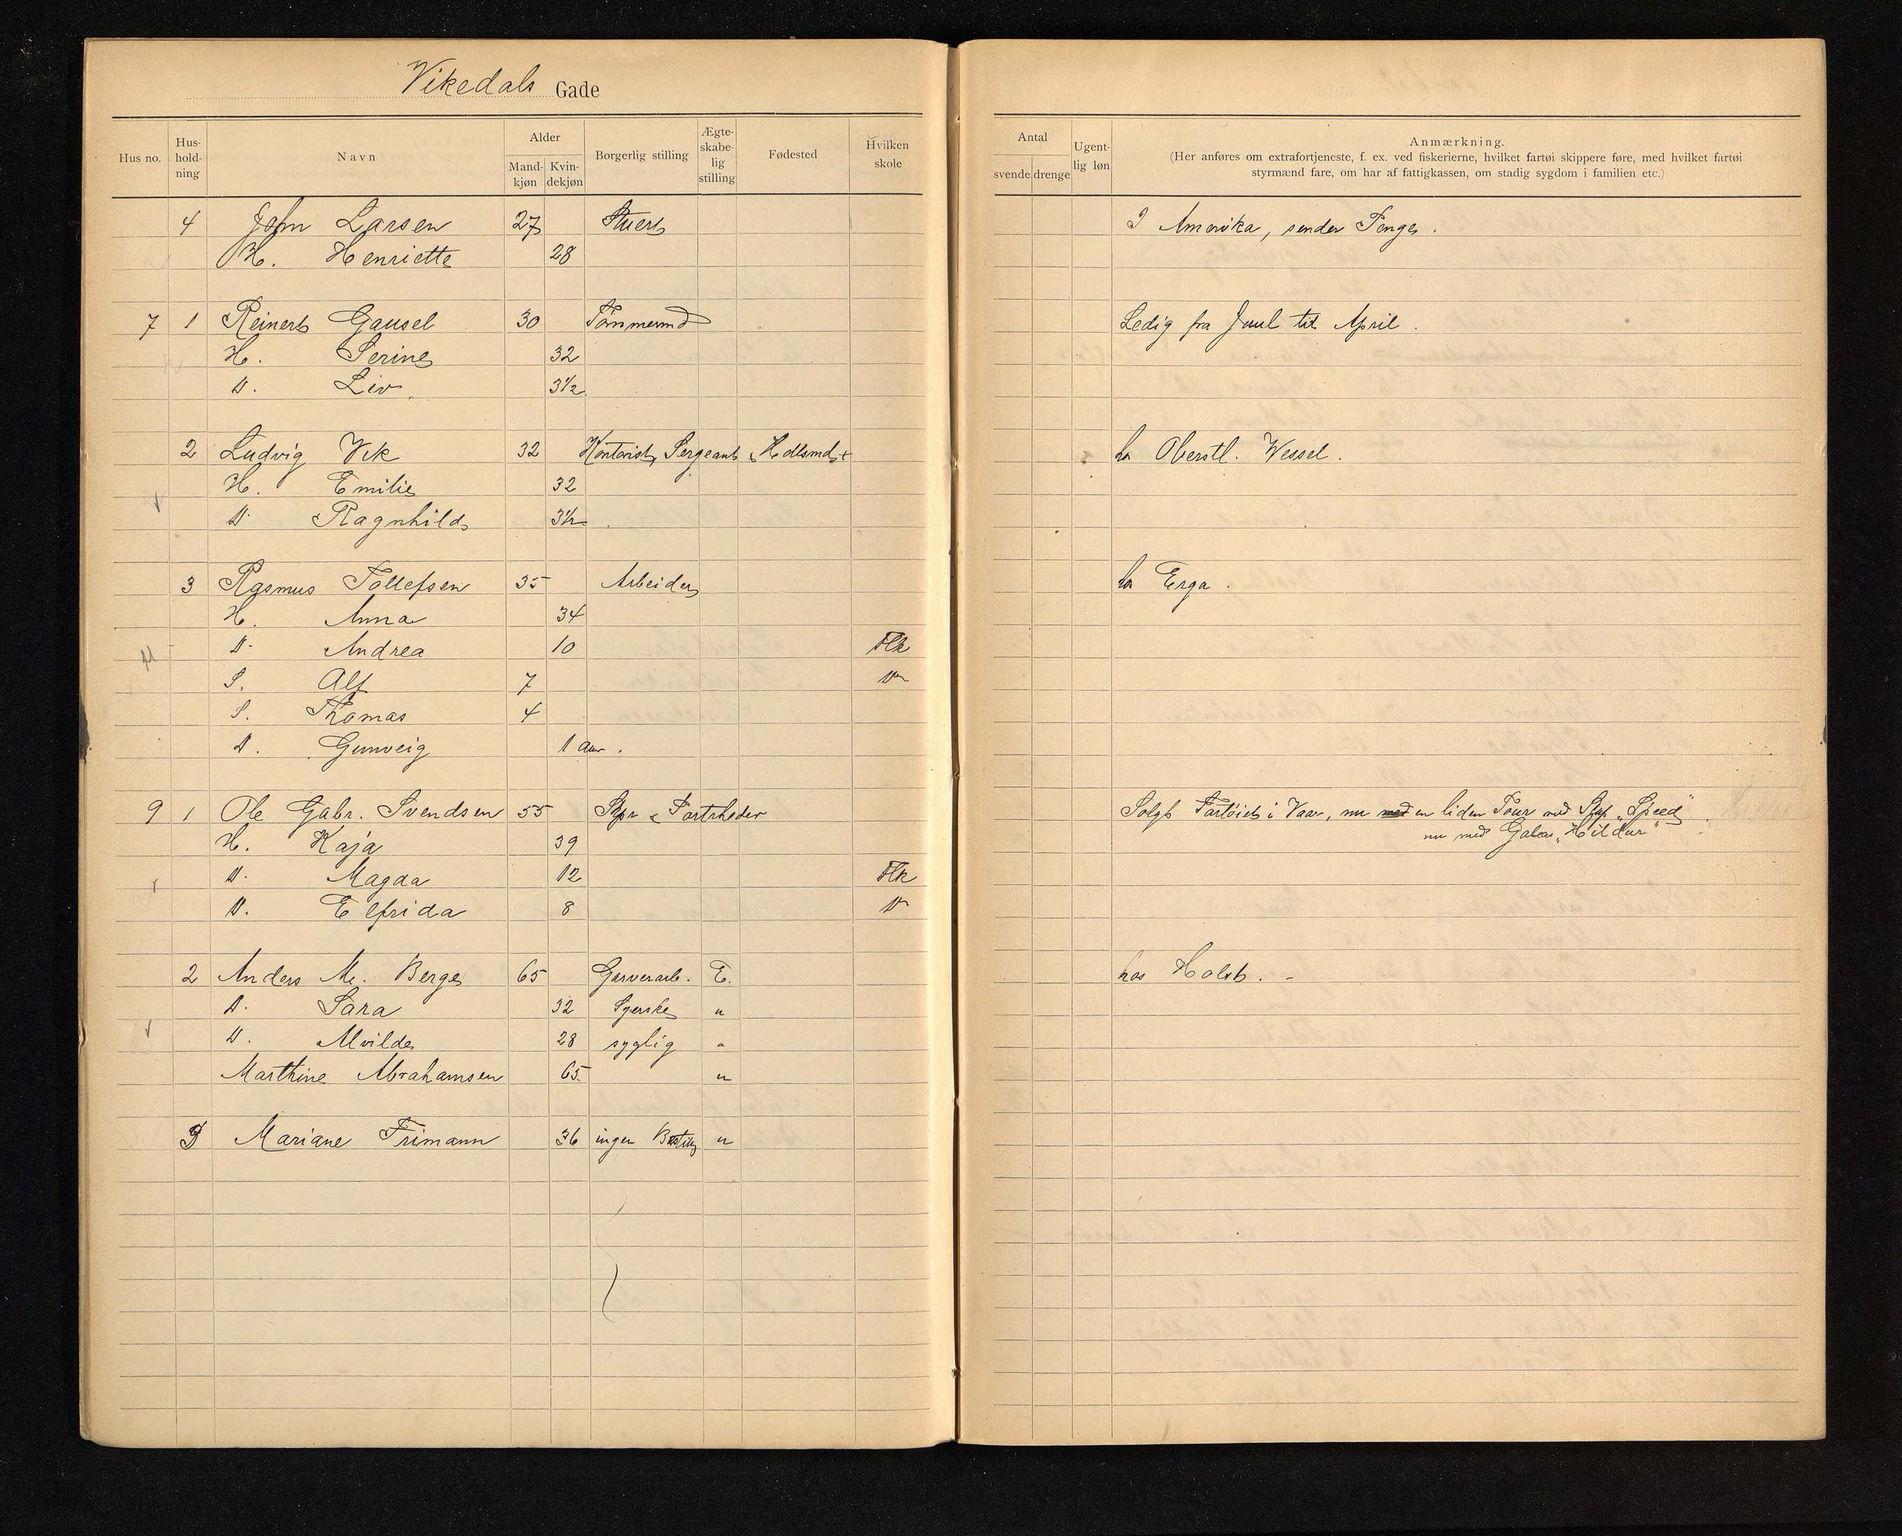 Vikedals Gade
Hus no. Hus-hold-ning Navn Alder Mand-kjøn Kvin-dekjøn Borgerlig stilling Ægte-skabe-lig stilling Fødested Hvilken skole
Antal svende drenge Ugent-lig løn Anmærkning.
(Her anføres om extrafortjeneste, f. ex. ved fiskerierne, hvilket fartøi skippere føre, med hvilket fartøi
styrmænd fare, om har af fattigkassen, om stadig sygdom i familien etc.)
4 John Larsen 27 Stuert I Amerika, sender Penge.
H. Henriette 28
7 1 Reinert Gausel 30 Tømmermd Ledig fra Juul til April.
H. Serine 32
D. Liv 3½
2 Ludvig Vik 32 Kontorist, Sergeant & Hdlsmd. ho Oberstl. Wessel.
H. Emilie 32
D. Ragnhild 3½
3 Rasmus Tollefsen 35 Arbeider ho Erga.
H. Anna 34
D. Andrea 10 Flk
S. Alf 7 Do
S. Thomas 4
D. Gunveig 1 Aar.
9 1 Ole Gabr. Svendsen 55 Skpr & Partrheder Solgt Fartøiet i Vaar, nu med en liden Tour med Skp. „Speed"
nu med Galeas „Hildur"
H. Kaja 39
D. Magda 12 Flk
D. Elfrida 8 D
2 Anders M. Berge 65 Garverarb. E. hos Holst. -
D. Sara 32 Syerske "
D. Alvilde 28 syglig "
Marthine Abrahamsen 65 "
3 Mariane Frimann 36 ingen Bestill "